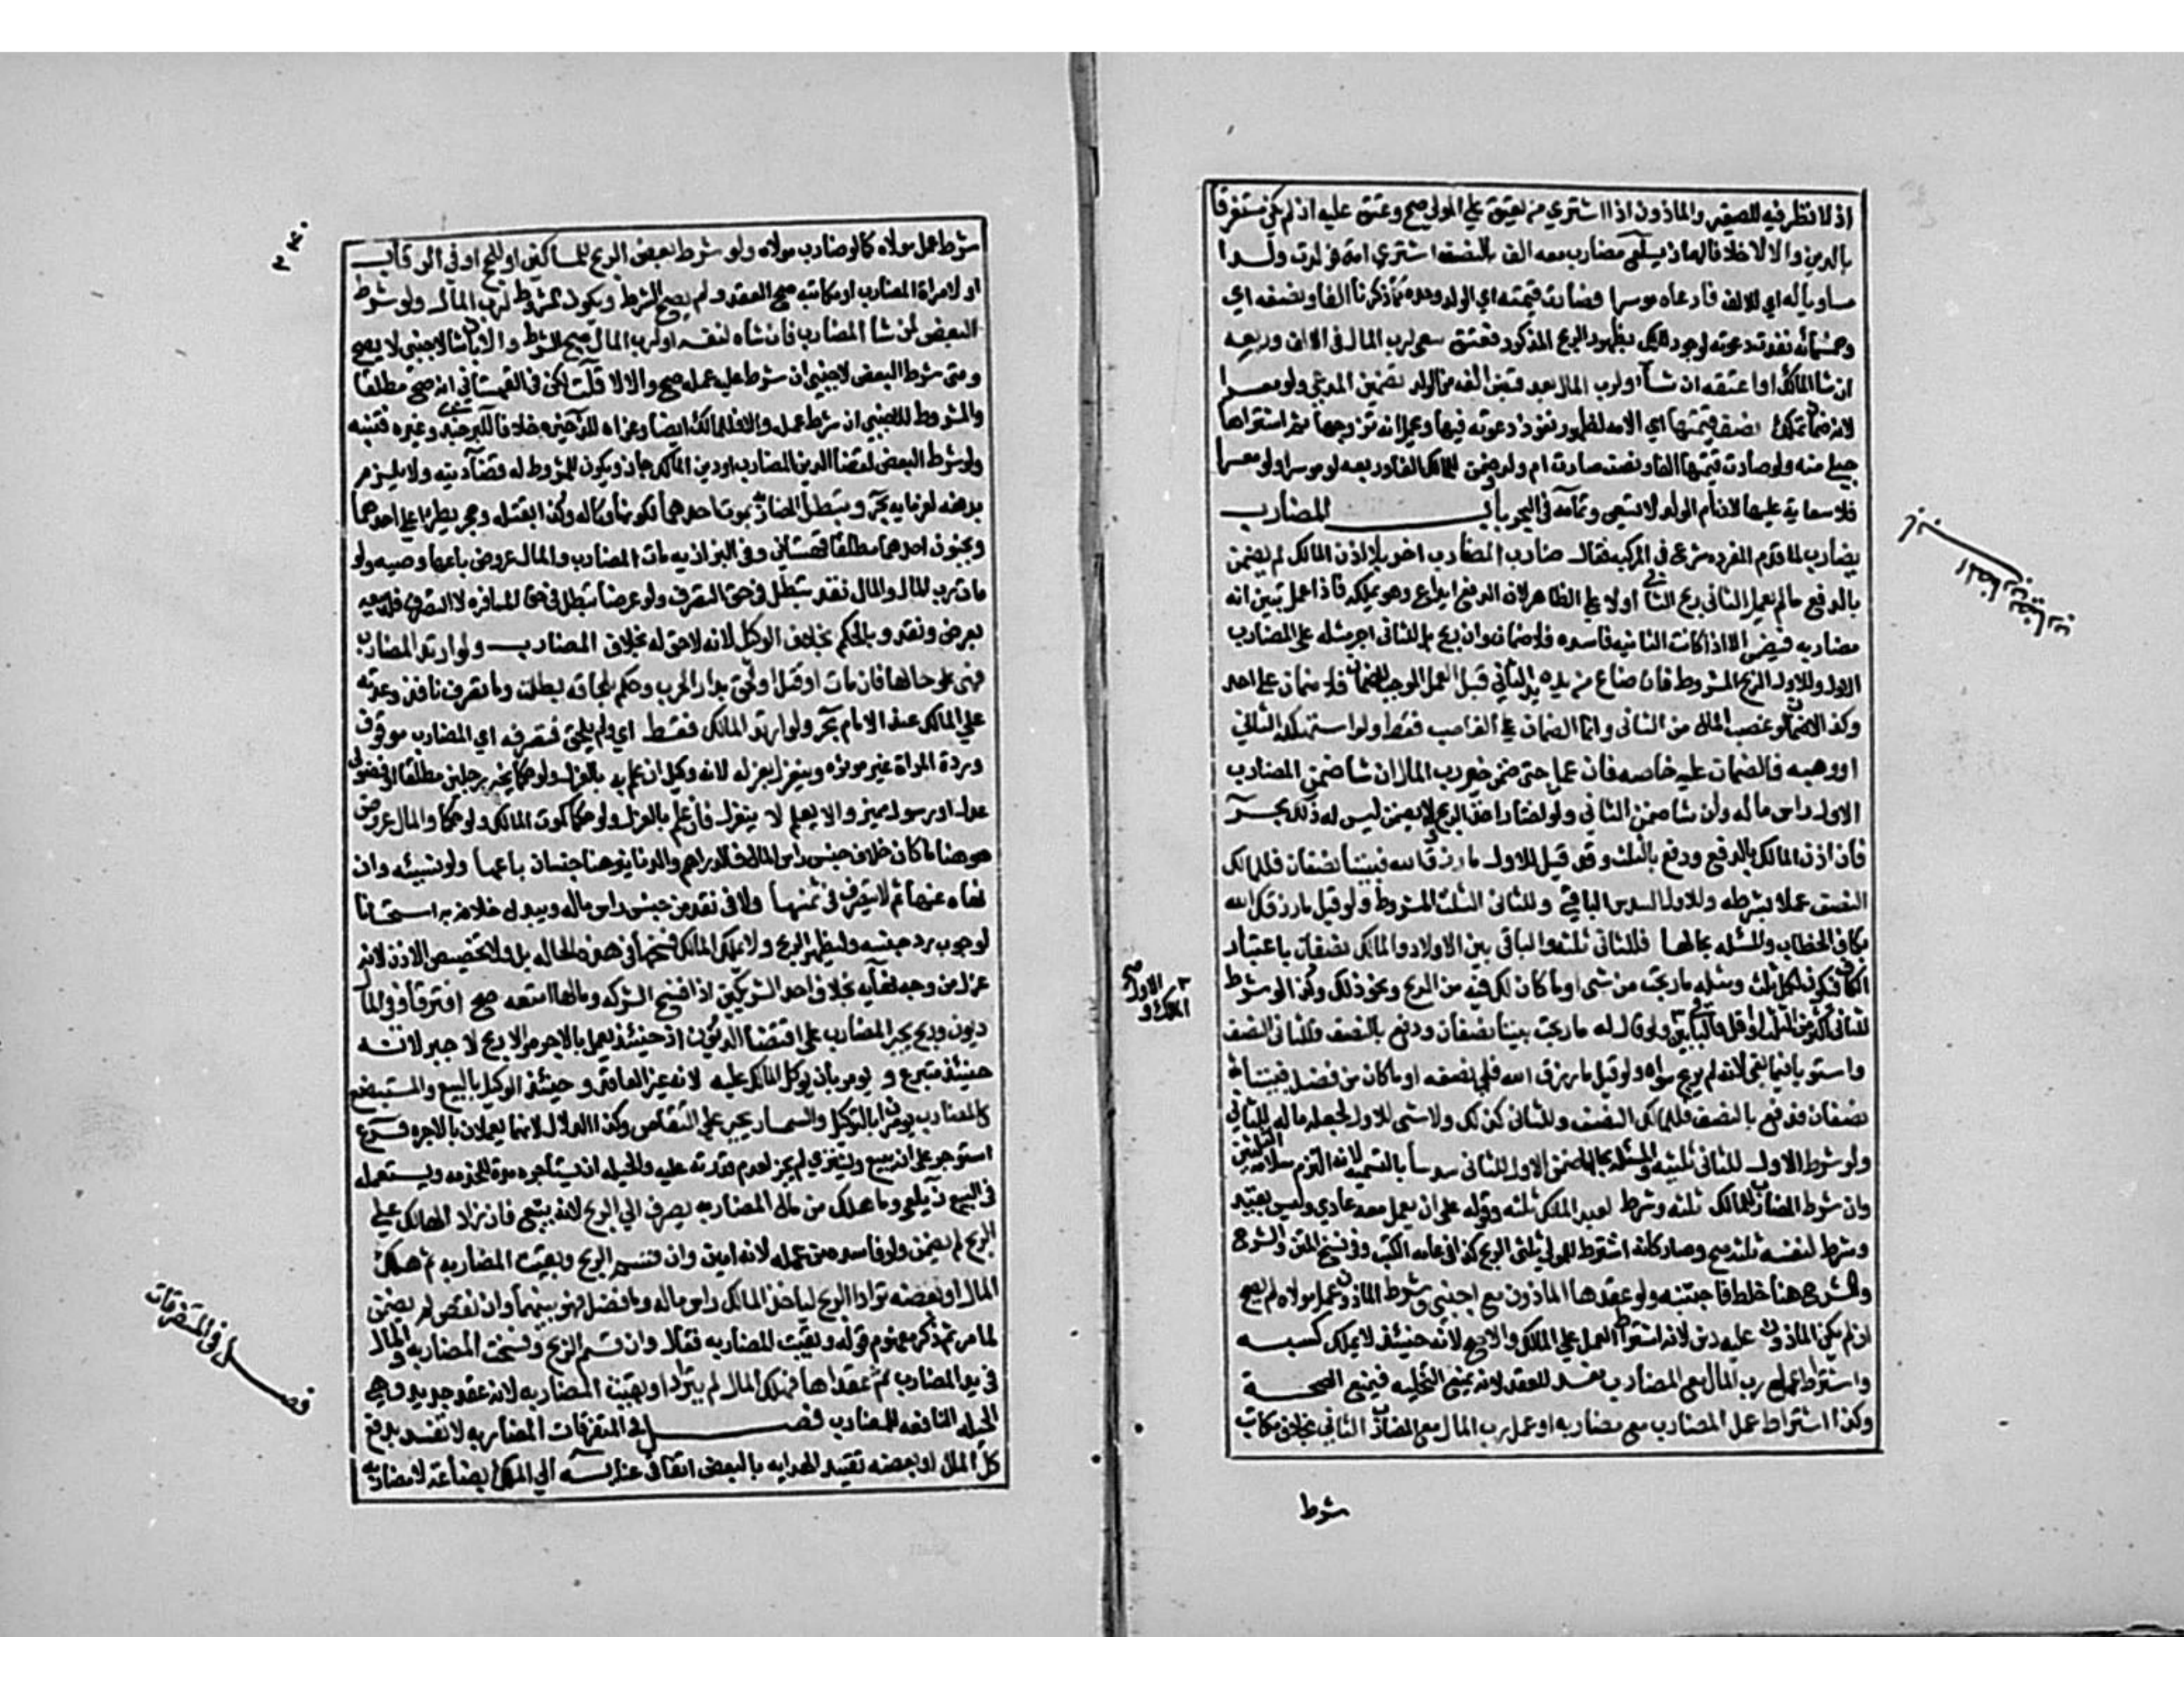 اذ لا نظر فيه للصغير والماذون اذا اشتري من يعتق علي المولي صح وعتق عليه ان لم يكن مستغرقا
بالدين والا لا خلافا لهما زيلعي مضارب معه الف بالنصف اشتري امة فولدت ولدا
مساويا له اي للالف فادعاه موسرا فصارت قيمته اي الولد وحده كما ذكرنا الفا ونصفه اي
وخمسمائه نفذت دعوته لوجود الملك بظهور الربح المذكور فعتق سعي لرب المال في الالف وربعه
ان شا المالك او اعتقه ان شا ولرب المال بعد قبض الفه من الولد تضمين المدعي ولو معسرا
لانه ضمان تملك نصف قيمتها اي الامه لظهور نفوذ دعوته فيها ويحمل انه تزوجها ثم اشتراها
حبلي منه ولو صارت قيمتها الفا ونصف صارت ام ولد وضمن للمالك الفا وربعه لو موسرا ولو معسرا
فلا سعاية عليها لان ام الولد لا تسعي وتمامه في البحر باب المضارب
يضارب لما قدم المفرده شرع في المركبه فقال ضارب المضارب اخر بلا اذن المالك لم يضمن
بالدفع ما لم يعمل الثاني ربح الثاني او لا علي الظاهر لان الدفع ايداع وهو يملكه فاذا عمل تبين انه
مضاربه فيضمن الا اذا كانت الثانيه فاسده فلا ضمان وان ربح بل للثاني اجر مثله علي المضارب
الاول وللاول الربح المشروط فان ضاع من يده اي يد الثاني قبل العمل الموجب للضمان فلا ضمان علي احد
وكذا لا ضمان لو غصب المال من الثاني وانما الضمان علي الغاصب فقط ولو استهلكه الثاني
او وهبه فالضمان عليه خاصه فان عمل حتي ضمن خير رب المال ان شا ضمن المضارب
الاول راس ماله وان شا ضمن الثاني ولو اختار اخذ الربح ولا يضمن ليس له ذلك بحر
فان اذن المالك بالدفع ودفع بالثلث وقد قيل للاول ما رزق الله فبيننا نصفان فللمالك
النصف عملا بشرطه وللاول السدس الباقي وللثاني الثلث المشروط ولو قيل ما رزقك الله
بكاف الخطاب والمسئله بحالها فللثاني ثلثه والباقي بين الاول والمالك نصفان باعتبار
الكاف فيكون لكل ثلث ومثله ما ربحت من شي او ما كان لك فيه من الربح ونحو ذلك وكذا لو شرط
للثاني اكثر من الثلث او اقل فالباقي بين ولو قال له ما ربحت بيننا نصفان ودفع بالنصف فللثاني النصف
واستويا فيما بقي لانه لم يربح سواه ولو قيل ما رزق الله فلي نصفه او ما كان من فضل فبيننا
نصفان فدفع بالنصف فللمالك النصف وللثاني كذلك ولا شي للاول لجعله ماله للثاني
ولو شرط الاول للثاني ثلثيه والمسئله بحالها ضمن الاول للثاني سدسا بالتسميه لانه التزم سلامة الثلثين
وان شرط المضارب للمالك ثلثه وشرط لعبد المالك ثلثه وقوله علي ان يعمل معه عادي وليس بقيد
وشرط لنفسه ثلثه صح وصار كانه اشترط للمولي ثلثي الربح كذا في عامه الكتب وفي نسخ المتن والشرح
والشرح هنا خلط فاجتنبه ولو عقدها الماذون مع اجنبي وشرط الماذون عمل مولاه لم يصح
ان لم يكن الماذون عليه دين لانه اشترط العمل علي المالك والا صح لانه حينئذ لا يملك كسبه
واشتراط عمل رب المال مع المضارب مفسد للعقد لانه يمنع التخليه فيمنع الصحة
وكذا اشتراط عمل المضارب مع مضاربه او عمل رب المال مع المضارب الثاني بخلاف مكاتب
شرط
شرط عمل مولاه كما لو ضارب مولاه ولو شرط بعض الربح للمساكين او للحج او في الرقاب
او لامراة المضارب او مكاتبه صح العقد ولم يصح الشرط ويكون المشروط لرب المال ولو شرط
البعض لمن شا المضارب فان شاه لنفسه او لرب المال صح الشرط والا بان شا لاجنبي لا يصح
ومتي شرط البعض لاجنبي ان شرط عليه عمله صح والا لا قلت لكن في القهستاني انه صح مطلقا
والمشروط للاجنبي ان شرط عمله والا فللمالك ايضا وعزاه للذخيره خلافا للبرجندي وغيره فتنبه
ولو شرط البعض لقضا الدين المضارب او دين المالك جاز ويكون للمشروط له قضا دينه ولا يلزم
بدفعه لغرمايه بحر وتبطل المضاربه بموت احدهما لكونها وكاله وكذا بقتله وحجر يطرا علي احدهما
وبجنون احدهما مطلقا قهستاني وفي البزازيه مات المضارب والمال عروض باعها وصيه ولو
مات رب المال والمال نقد تبطل في حق التصرف ولو عرضا تبطل في حق المسافره لا التصرف فله بيعه
بعرض ونقد وبالحكم بخلاف الوكيل لانه لا حق له بخلاف المضارب ولو ارتد المضارب
فهي علي حالها فان مات او قتل او لحق بدار الحرب وحكم بلحاقه بطلت وما تصرف نافذ وعهدته
علي المالك عند الامام بحر ولو ارتد المالك فقط اي ولم يلحق فتصرفه اي المضارب موقوف
وردة المراة غير موثره وينعزل بعزله لانه وكيل ان علم به بالعزل ولو حكما بخبر رجلين مطلقا او فضولي
عدل او رسول مميز والا يعلم لا ينعزل فان علم بالعزل ولو حكما كموت المالك ولو حكما والمال عروض
هو هنا ما كان خلاف جنس راس المال فالدراهم والدنانير هنا جنسان باعها ولو نسيئه وان
نهاه عنها ثم لا يتصرف في ثمنها ولا في نقد من جنس راس ماله ويبدل خلافه به استحسانا
لوجوب رد جنسه وليظهر الربح ولا يملك المالك فسخها في هذه الحاله بل ولا تخصيص الاذن لانه
عزل من وجه نهايه بخلاف احد الشريكين اذا فسخ الشركه ومالها امتعه صح افترقا وفي المال
ديون وربح يجبر المضارب علي اقتضا الديون اذ حينئذ يعمل بالاجره والا ربح لا جبر لانه
حينئذ متبرع و يومر بان يوكل المالك عليه لانه غير العاقد و حينئذ الوكيل بالبيع والمستبضع
كالمضارب يومران بالتوكيل والسمسار يجبر علي التقاضي وكذا الدلال لانهما يعملان بالاجره فرع
استوجر علي ان يبيع ويشتري لم يجز لعدم قدرته عليه والحيله ان يستاجره مدة للخدمه ويستعمله
في البيع زيلعي وما هلك من مال المضاربه يصرف الي الربح لانه تبع فان زاد الهالك علي
الربح لم يضمن ولو فاسده من عمله لانه امين وان قسم الربح وبقيت المضاربه ثم هلك
المال او بعضه ترادا الربح لياخذ المالك راس ماله وما فضل فهو بينهما وان نقص لم يضمن
لما مر ثم ذكر مفهوم قوله وبقيت المضاربه فقال وان قسم الربح وفسخت المضاربه والمال
في يد المضارب ثم عقداها فهلك المال لم يترادا وبقيت المضاربه لانه عقد جديد وهي
الحيله النافعه للمضارب فصل في المتفرقات المضاربه لا تفسد بدفع
كل المال او بعضه تقييد الهدايه بالبعض اتفاقي عنايه الي المالك بضاعة لا مضاربه
فصل في المتفرقات